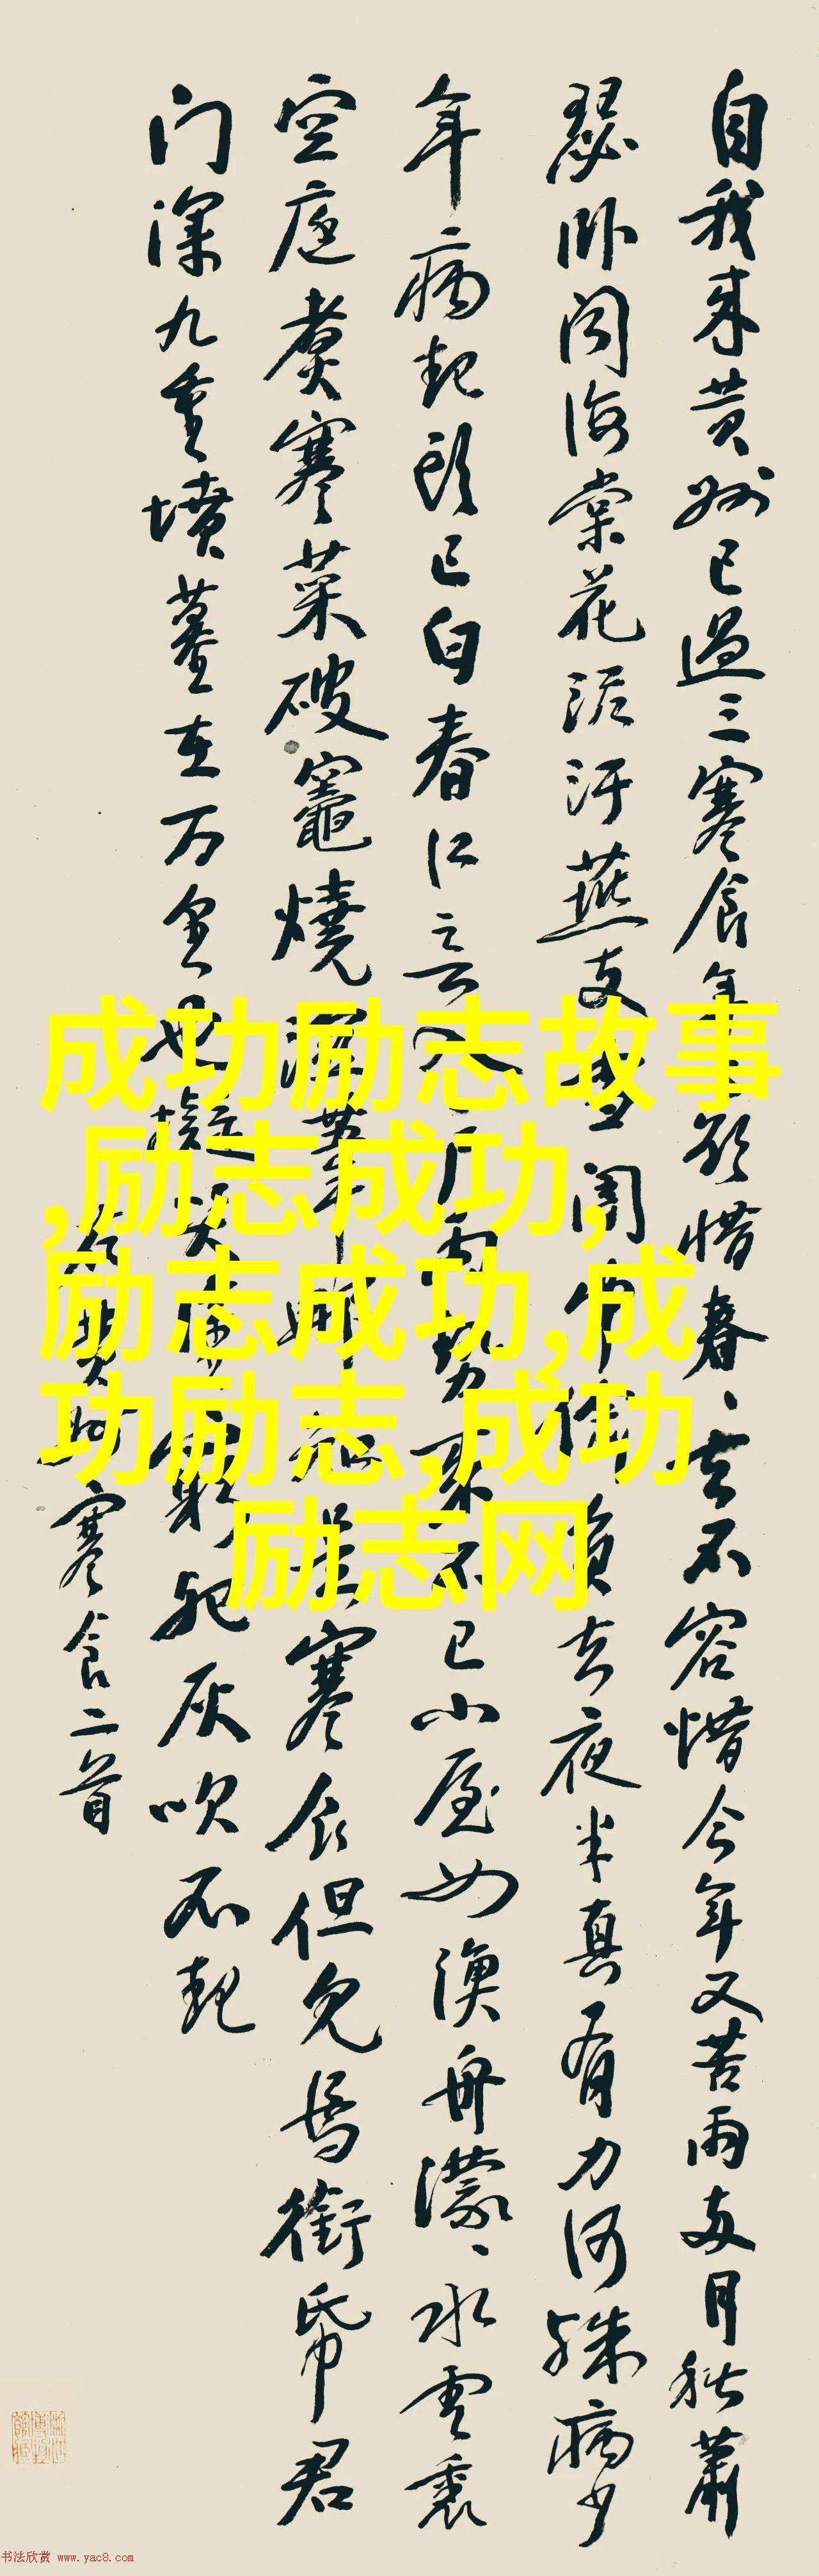 自我来黄州已過三寒食年、欲惜春、去不容惜今年又苦雨两月秋蕭
瑟卧闻海棠花泥汙燕支雪闇中偷負去夜半真有力何殊病少
年病起頭已白春江入户雨勢来不已小屋如漁舟濛、水雲裏
空庖煮寒菜破竈燒濕葦那知是寒食但見烏銜帋君
门深九重墳墓在万里也擬哭塗窮死灰吹不起
右黄州寒食二首
成功励志故事
,励志成功,
励志成功,成
功励志,成功
励志网
书法欣赏 www.yac8.com